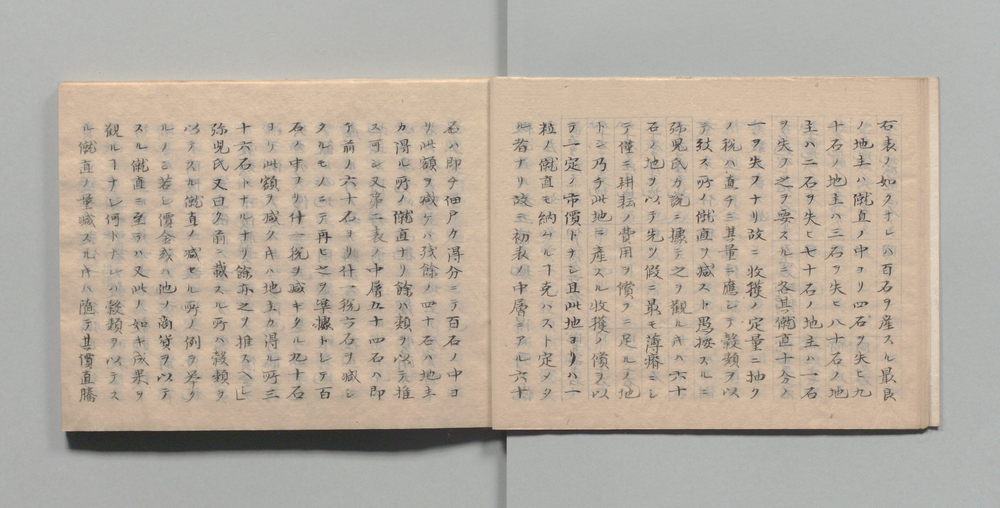 右表ノ如クナレハ百石ヲ産スル最良
ノ地主ハ僦直ノ中ヨリ四石ヲ失ヒ九
十石ノ地主ハ三石ヲ失ヒ八十石ノ地
主ハ二石ヲ失ヒ七十石ノ地主ハ一石
ヲ失フ之ヲ要スルニ各其僦直十分ノ
一ヲ失フナリ故ニ收獲ノ定量ニ抽ク
ノ税ハ直チニ其量ニ應シテ穀類ヲ以
テ効ス所ノ僦直ヲ減スト愚按スルニ
弥児氏カ説ニ據テ之ヲ觀ルキハ六十
石ノ地ヲ以テ先ツ假ニ最モ薄瘠ニシ
テ僅ニ耕耘ノ費用ヲ償フニ足ルノ地
トシ乃チ此地ニ産スル收獲ノ償ヲ以
テ一定ノ市價トナシ且此地ヨリハ一
粒ノ僦直モ納ムル丁克ハスト定メタ
ル者ナリ故ニ初表ノ中層ニアル六十
石ハ即チ佃戸ノ得分ニテ百石ノ中ヨ
リ此額ヲ減ケハ残餘ノ四十石ハ地主
カ得ル所ノ僦直ナリ餘ハ類ヲ以テ推
スヘシ又第二表ノ中層五十四石ハ即
チ前ノ六十石ヨリ什一税六石ヲ減シ
タルモノニテ再ヒ之ヲ準據トシテ百
石ノ中ヨリ什一税ヲ減キタル九十石
ヨリ此額ヲ減クキハ地主カ得ル所三
十六石トナルナリ餘亦之ヲ推スヘシ
弥児氏又曰ク前ニ載スル所ハ穀類ヲ
以テスル僦直ノ減セル所ノ例ヲ挙ク
ルノミ若シ償金或ハ他ノ商貨ヲ以テ
スル僦直ニ至テハ又此ノ如キ成果ヲ
觀ル丁ナシ何トナレハ穀類ヲ以テス
ル僦直ノ量減スルキハ随テ其價直騰